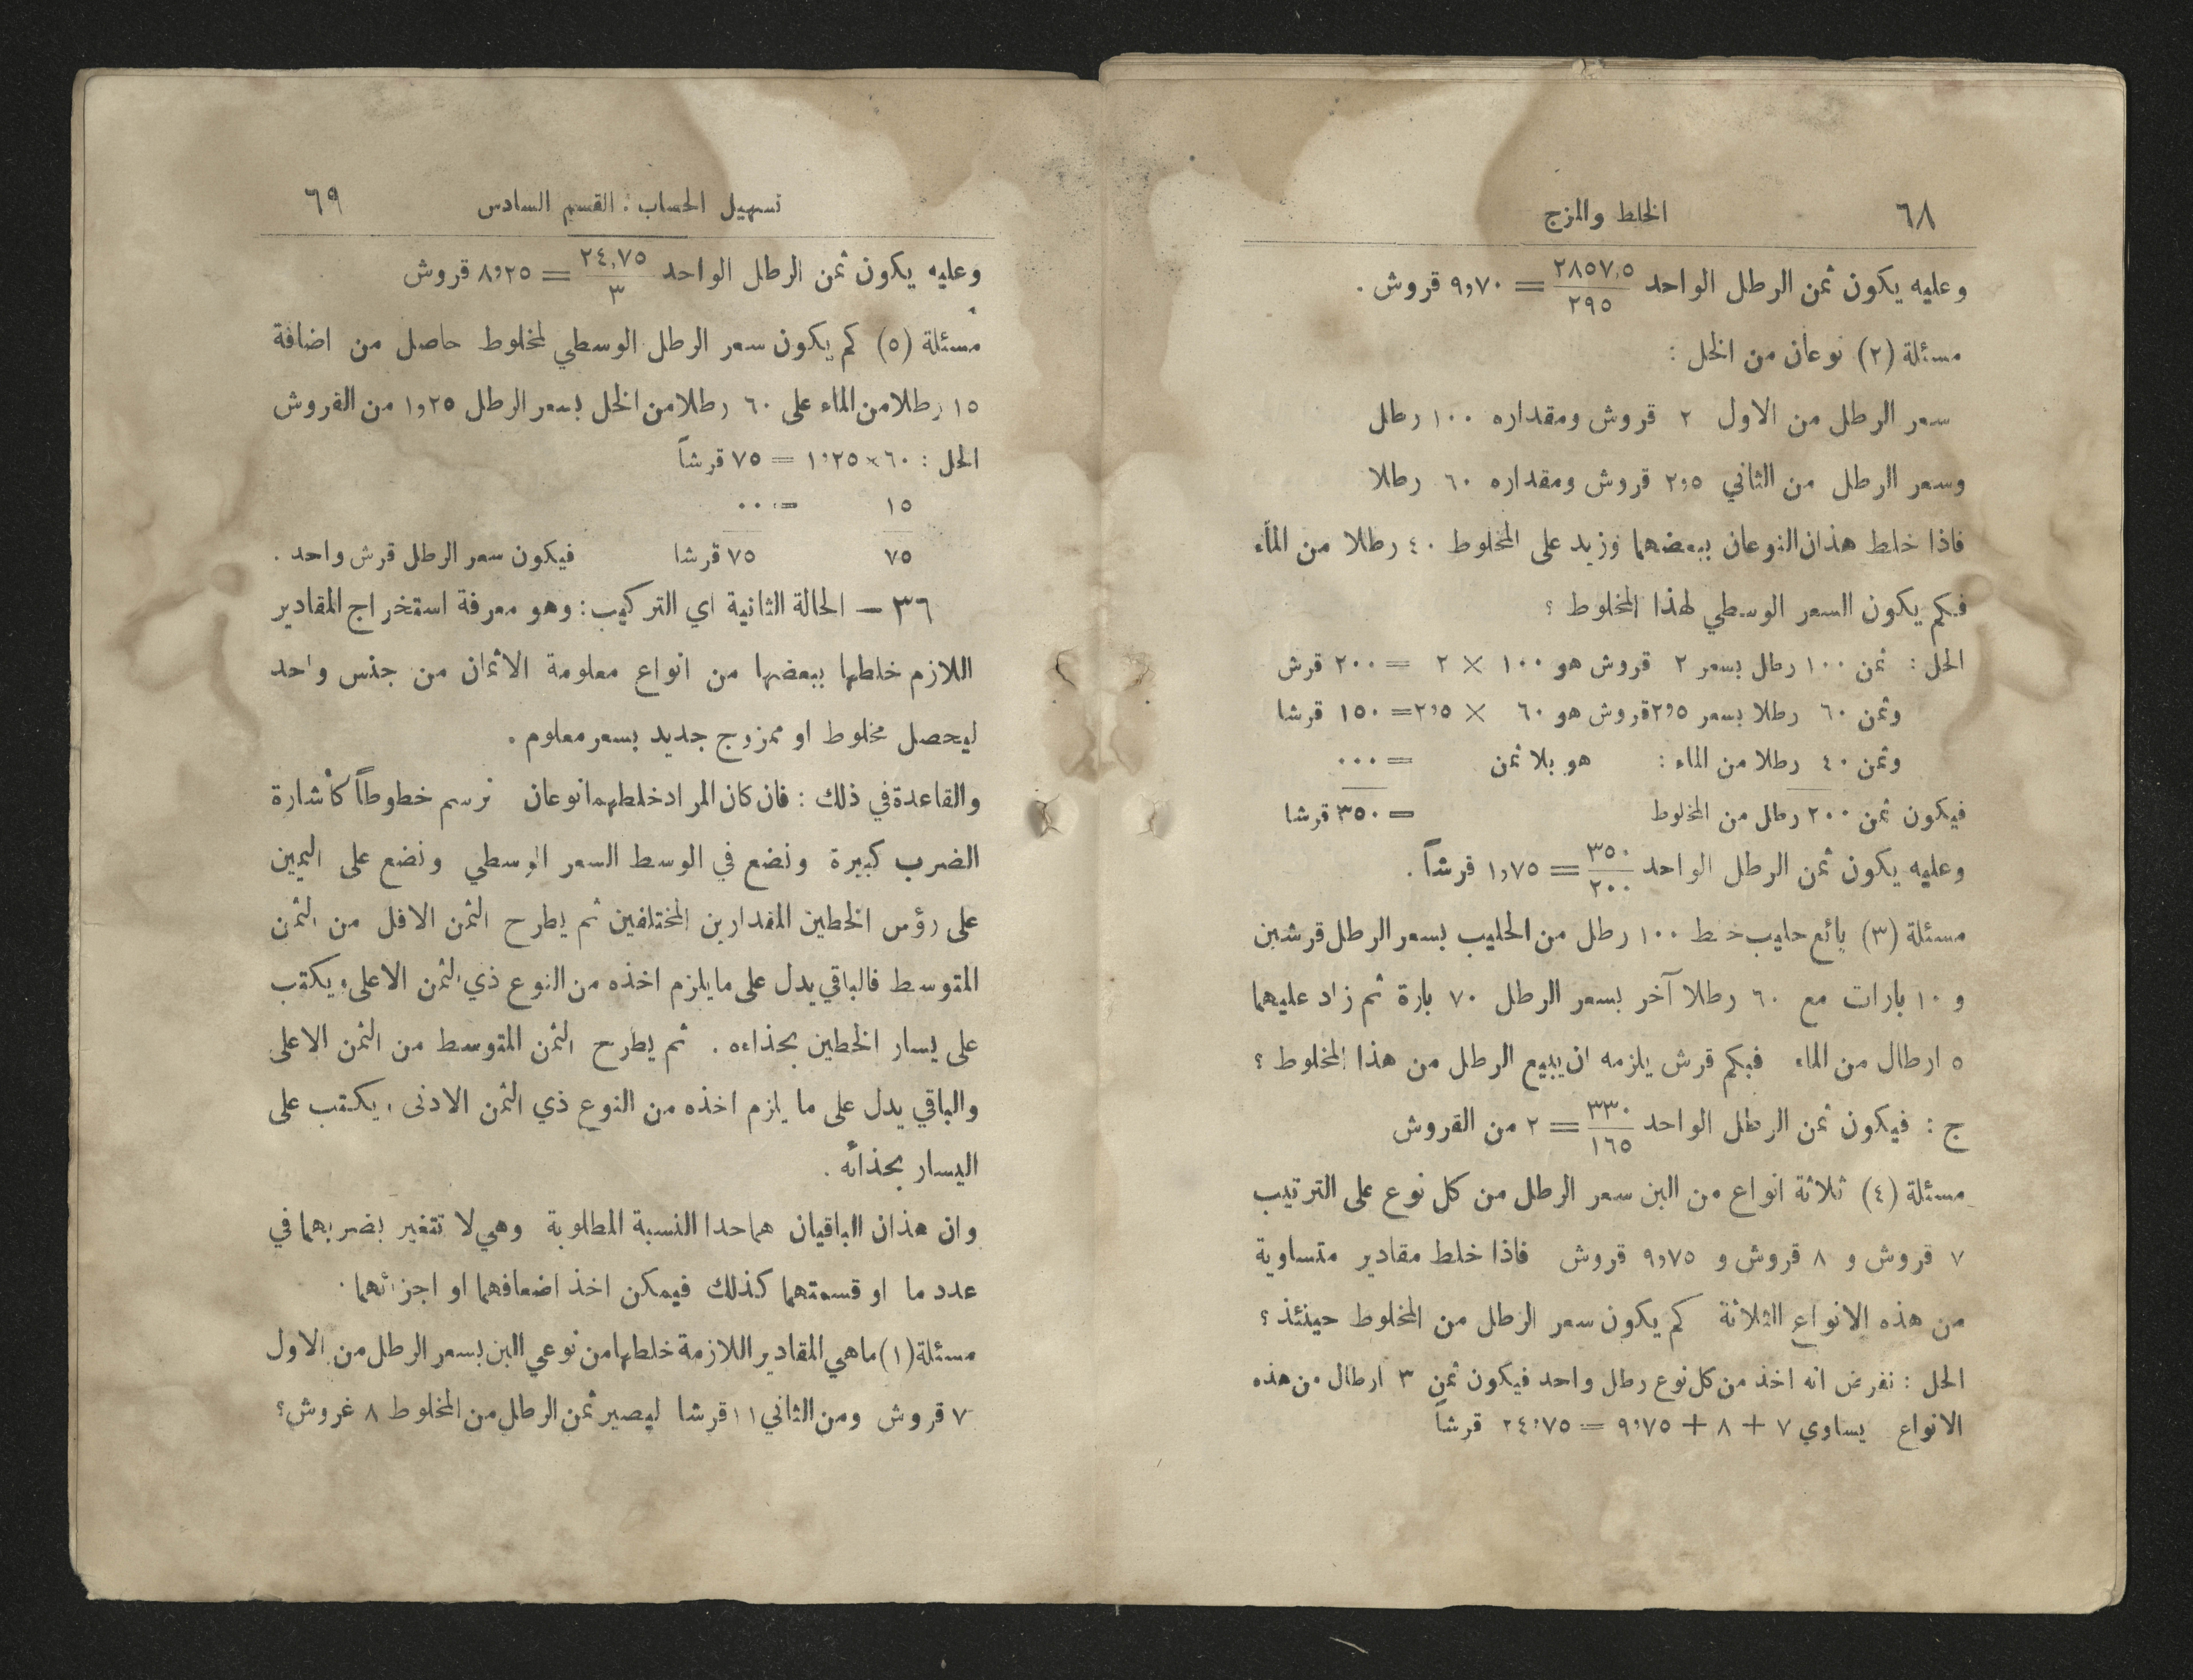 ٦٨ الخلط والمزج
وعليه يكون ثمن الرطل الواحد ٢٨٥٧,٥ / ٢٩٥ = ٩,٧٠ قروش .
مسئلة (٢) نوعان من الخل :
سعر الرطل من الاول ٢ قروش ومقداره ١٠٠ رطل
وسعر الرطل من الثاني ٢,٥ قروش ومقداره ٦٠ رطلا
فاذا خلط هذان النوعان ببعضهما وزيد على المخلوط ٤٠ رطلا من الماء
فكم يكون السعر الوسطي لهذا المخلوط ؟
الحل : ثمن ١٠٠ رطل بسعر ٢ قروش هو ١٠٠ × ٢ = ٢٠٠ قرش
وثمن ٦٠ رطلا بسعر ٢,٥ قروش هو ٦٠ × ٢,٥ = ١٥٠ قرشا
وثمن ٤٠ رطلا من الماء : هو بلا ثمن = ٠٠٠
فيكون ثمن ٢٠٠ رطل من المخلوط = ٣٥٠ قرشا
وعليه يكون ثمن الرطل الواحد ٣٥٠ / ٢٠٠ = ١,٧٥ قرشاً .
مسئلة (٣) بائع حليب خلط ١٠٠ رطل من الحليب بسعر الرطل قرشين
و ١٠ بارات مع ٦٠ رطلا آخر بسعر الرطل ٧٠ بارة ثم زاد عليهما
٥ ارطال من الماء فبكم قرش يلزمه ان يبيع الرطل من هذا المخلوط ؟
ج : فيكون ثمن الرطل الواحد ٣٣٠ / ١٦٥ = ٢ من القروش
مسئلة (٤) ثلاثة انواع من البن سعر الرطل من كل نوع على الترتيب
٧ قروش و ٨ قروش و ٩,٧٥ قروش فاذا خلط مقادير متساوية
من هذه الانواع الثلاثة كم يكون سعر الرطل من المخلوط حينئذ ؟
الحل : نفرض انه اخذ من كل نوع رطل واحد فيكون ثمن ٣ ارطال من هذه
الانواع يساوي ٧ + ٨ + ٩,٧٥ = ٢٤,٧٥ قرشاً
تسهيل الحساب : القسم السادس ٦٩
وعليه يكون ثمن الرطل الواحد ٢٤,٧٥ / ٣ = ٨,٢٥ قروش
مسئلة (٥) كم يكون سعر الرطل الوسطي لمخلوط حاصل من اضافة
١٥ رطلا من الماء على ٦٠ رطلا من الخل بسعر الرطل ١,٢٥ من القروش
الحل : ٦٠ × ١,٢٥ = ٧٥ قرشاً
١٥ = ٠٠
٧٥ ٧٥ قرشا فيكون سعر الرطل قرش واحد .
٣٦ – الحالة الثانية اي التركيب : وهو معرفة استخراج المقادير
اللازم خلطها ببعضها من انواع معلومة الاثمان من جنس واحد
ليحصل مخلوط او ممزوج جديد بسعر معلوم .
والقاعدة في ذلك : فان كان المراد خلطهما نوعان نرسم خطوطاً كأشارة
الضرب كبيرة ونضع في الوسط السعر الوسطي ونضع على اليمين
على رؤس الخطين المقدارين المختلفين ثم يطرح الثمن الاقل من الثمن
المتوسط فالباقي يدل على ما يلزم اخذه من النوع ذي الثمن الاعلى ويكتب
على يسار الخطين بحذاءه . ثم يطرح الثمن المتوسط من الثمن الاعلى
والباقي يدل على ما يلزم اخذه من النوع ذي الثمن الادنى ويكتب على
اليسار بحذائه .
وان هذان الباقيان هما حدا النسبة المطلوبة وهي لا تتغير بضربهما في
عدد ما او قسمتهما كذلك فيمكن اخذ اضعافهما او اجزائهما .
مسئلة (١) ما هي المقادير اللازمة خلطها من نوعي البن بسعر الرطل من الاول
٧ قروش ومن الثاني ١١ قرشا ليصير ثمن الرطل من المخلوط ٨ غروش ؟